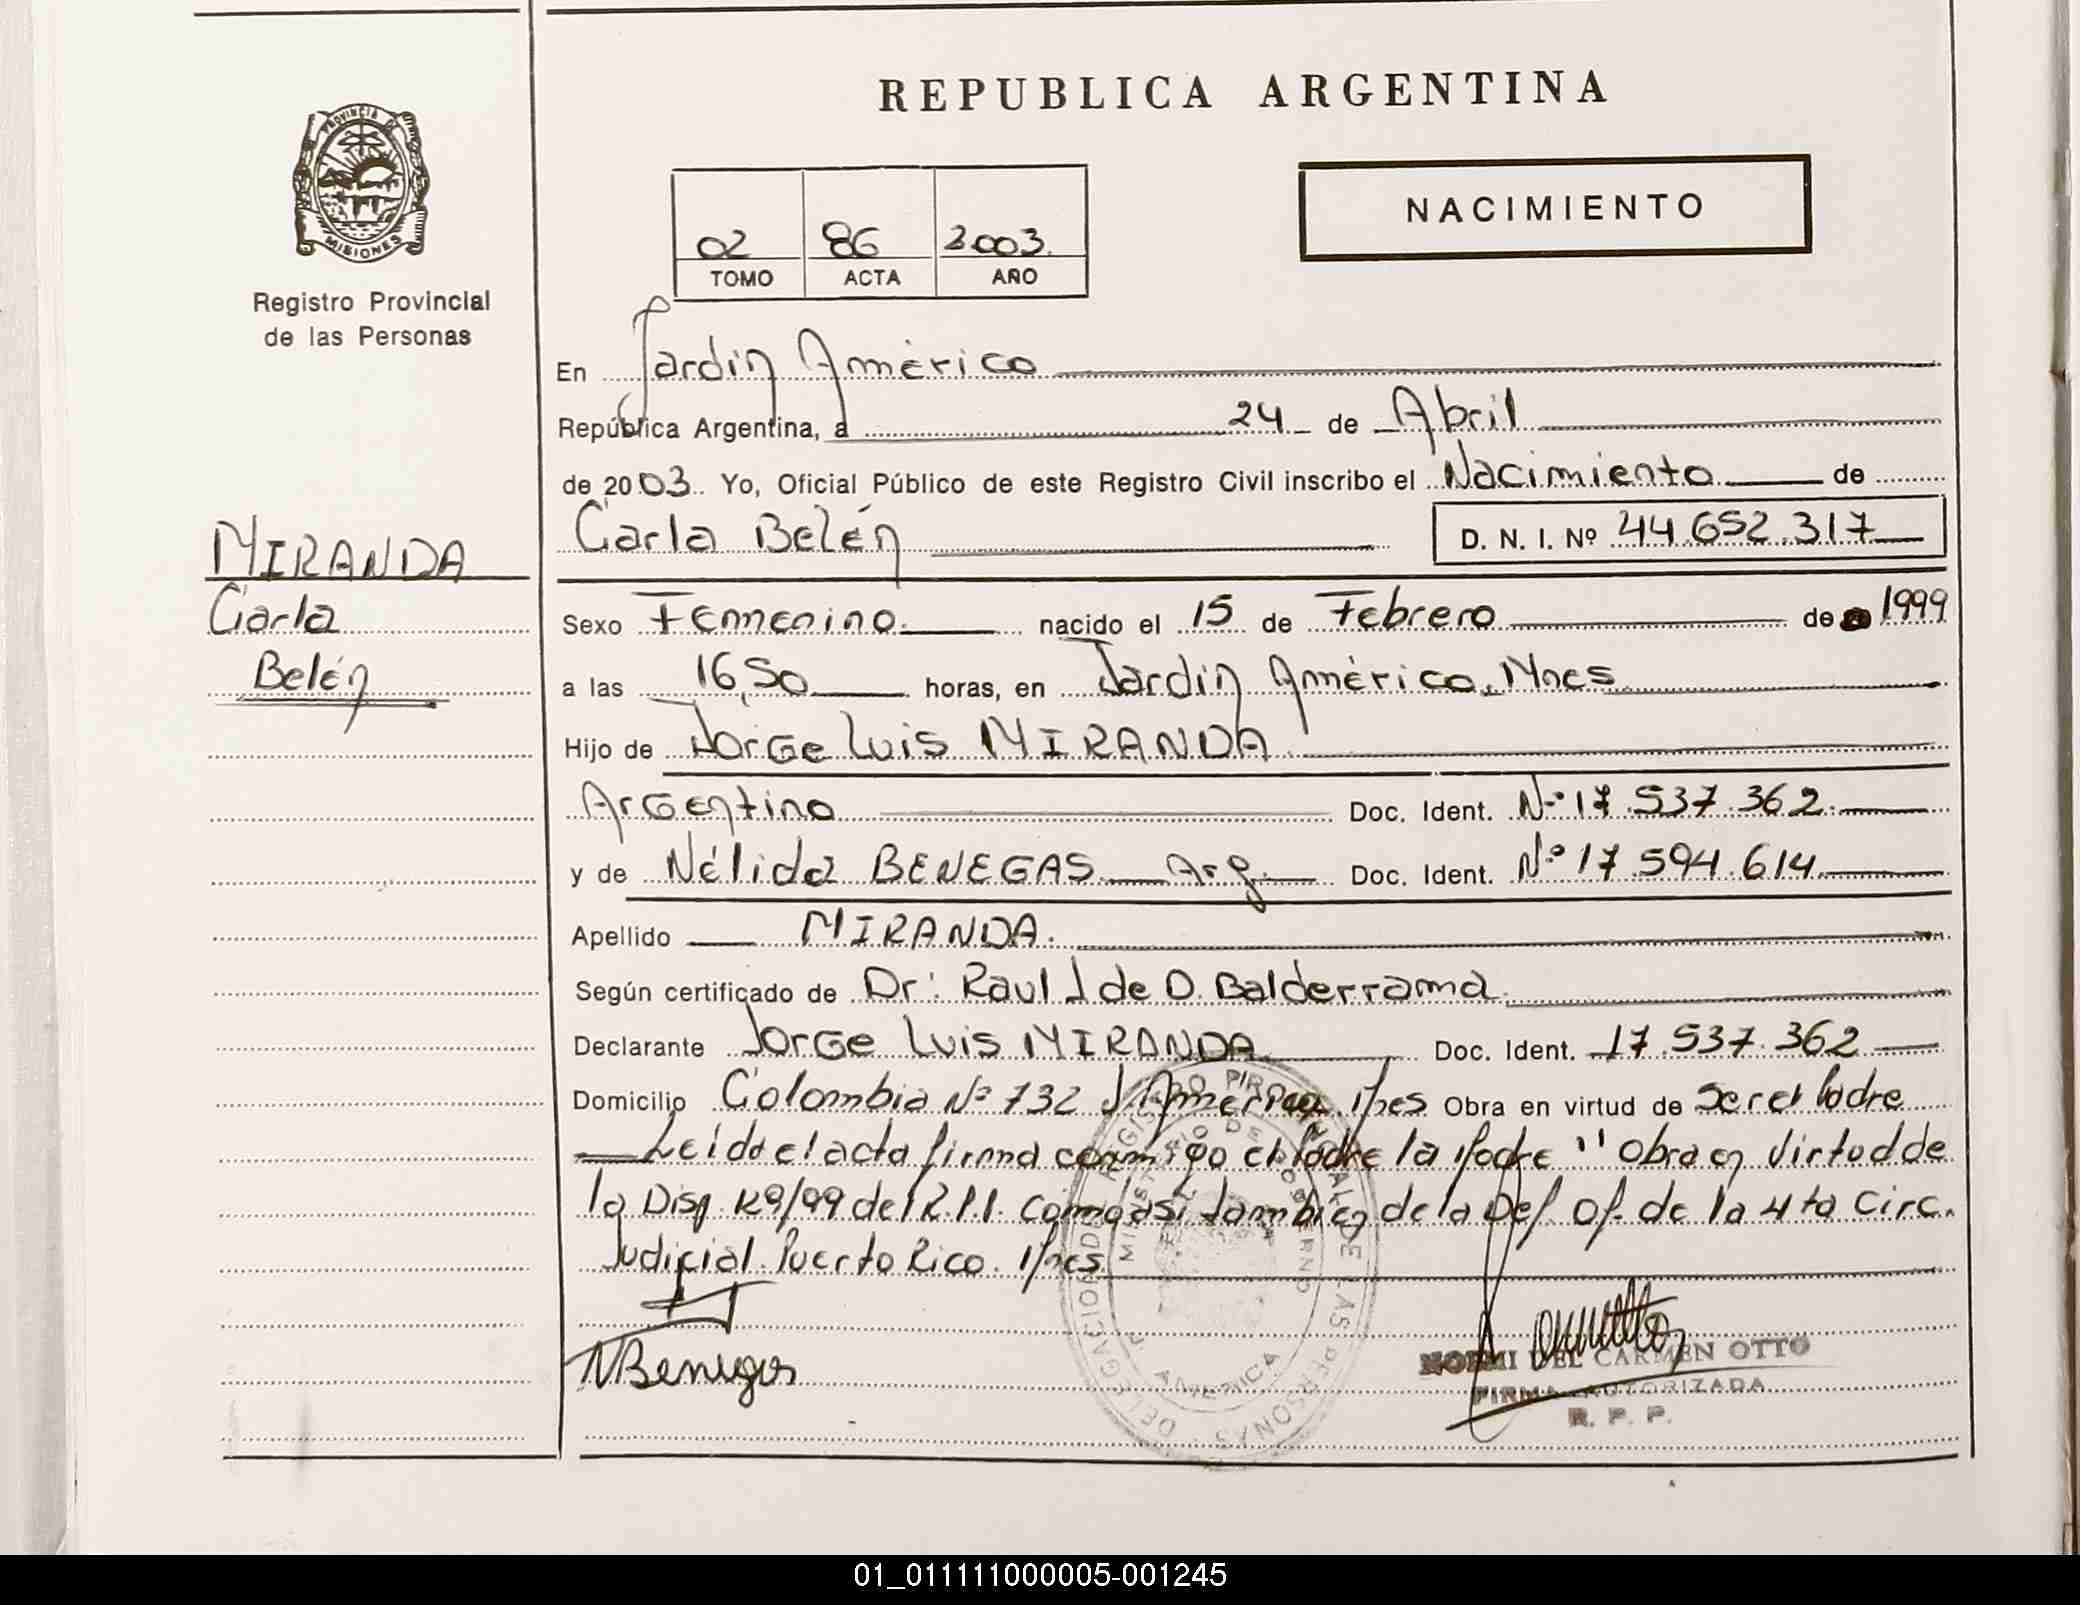 REPUBLICA ARGENTINA
PROVINCIA DE
MISIONES
Registro Provincial
de las Personas
02 86 2003.
TOMO ACTA AÑO
NACIMIENTO
En Jardín América
República Argentina, a 24 de Abril
de 2003. Yo, Oficial Público de este Registro Civil inscribo el Nacimiento de
Carla Belén D. N. I. Nº 44.652.317
MIRANDA
Carla
Belén
Sexo Femenino. nacido el 15 de Febrero de 1999
a las 16,50 horas, en Jardín América, Mnes
Hijo de Jorge Luis MIRANDA
Argentino Doc. Ident. Nº 17.537.362.
y de Nélida BENEGAS Arg. Doc. Ident. Nº 17.594.614
Apellido MIRANDA.
Según certificado de Dr: Raul J de D. Balderrama
Declarante Jorge Luis MIRANDA Doc. Ident. 17.537.362
Domicilio Colombia Nº 732 J. América. Mnes Obra en virtud de Ser el Padre
Leida el acta firma conmigo el Padre la Madre " Obra en Virtud de
la Disp. 129/99 del R.P.P. como así tambien de la Def. Of. de la 4ta Circ.
Judicial Puerto Rico. Mnes
NBenegas
DELEGACION DEL REGISTRO PROVINCIAL DE LAS PERSONAS
MINISTERIO DE GOBIERNO
J. AMERICA
NORMI DEL CARMEN OTTO
FIRMA AUTORIZADA
R. P. P.
01_011111000005-001245